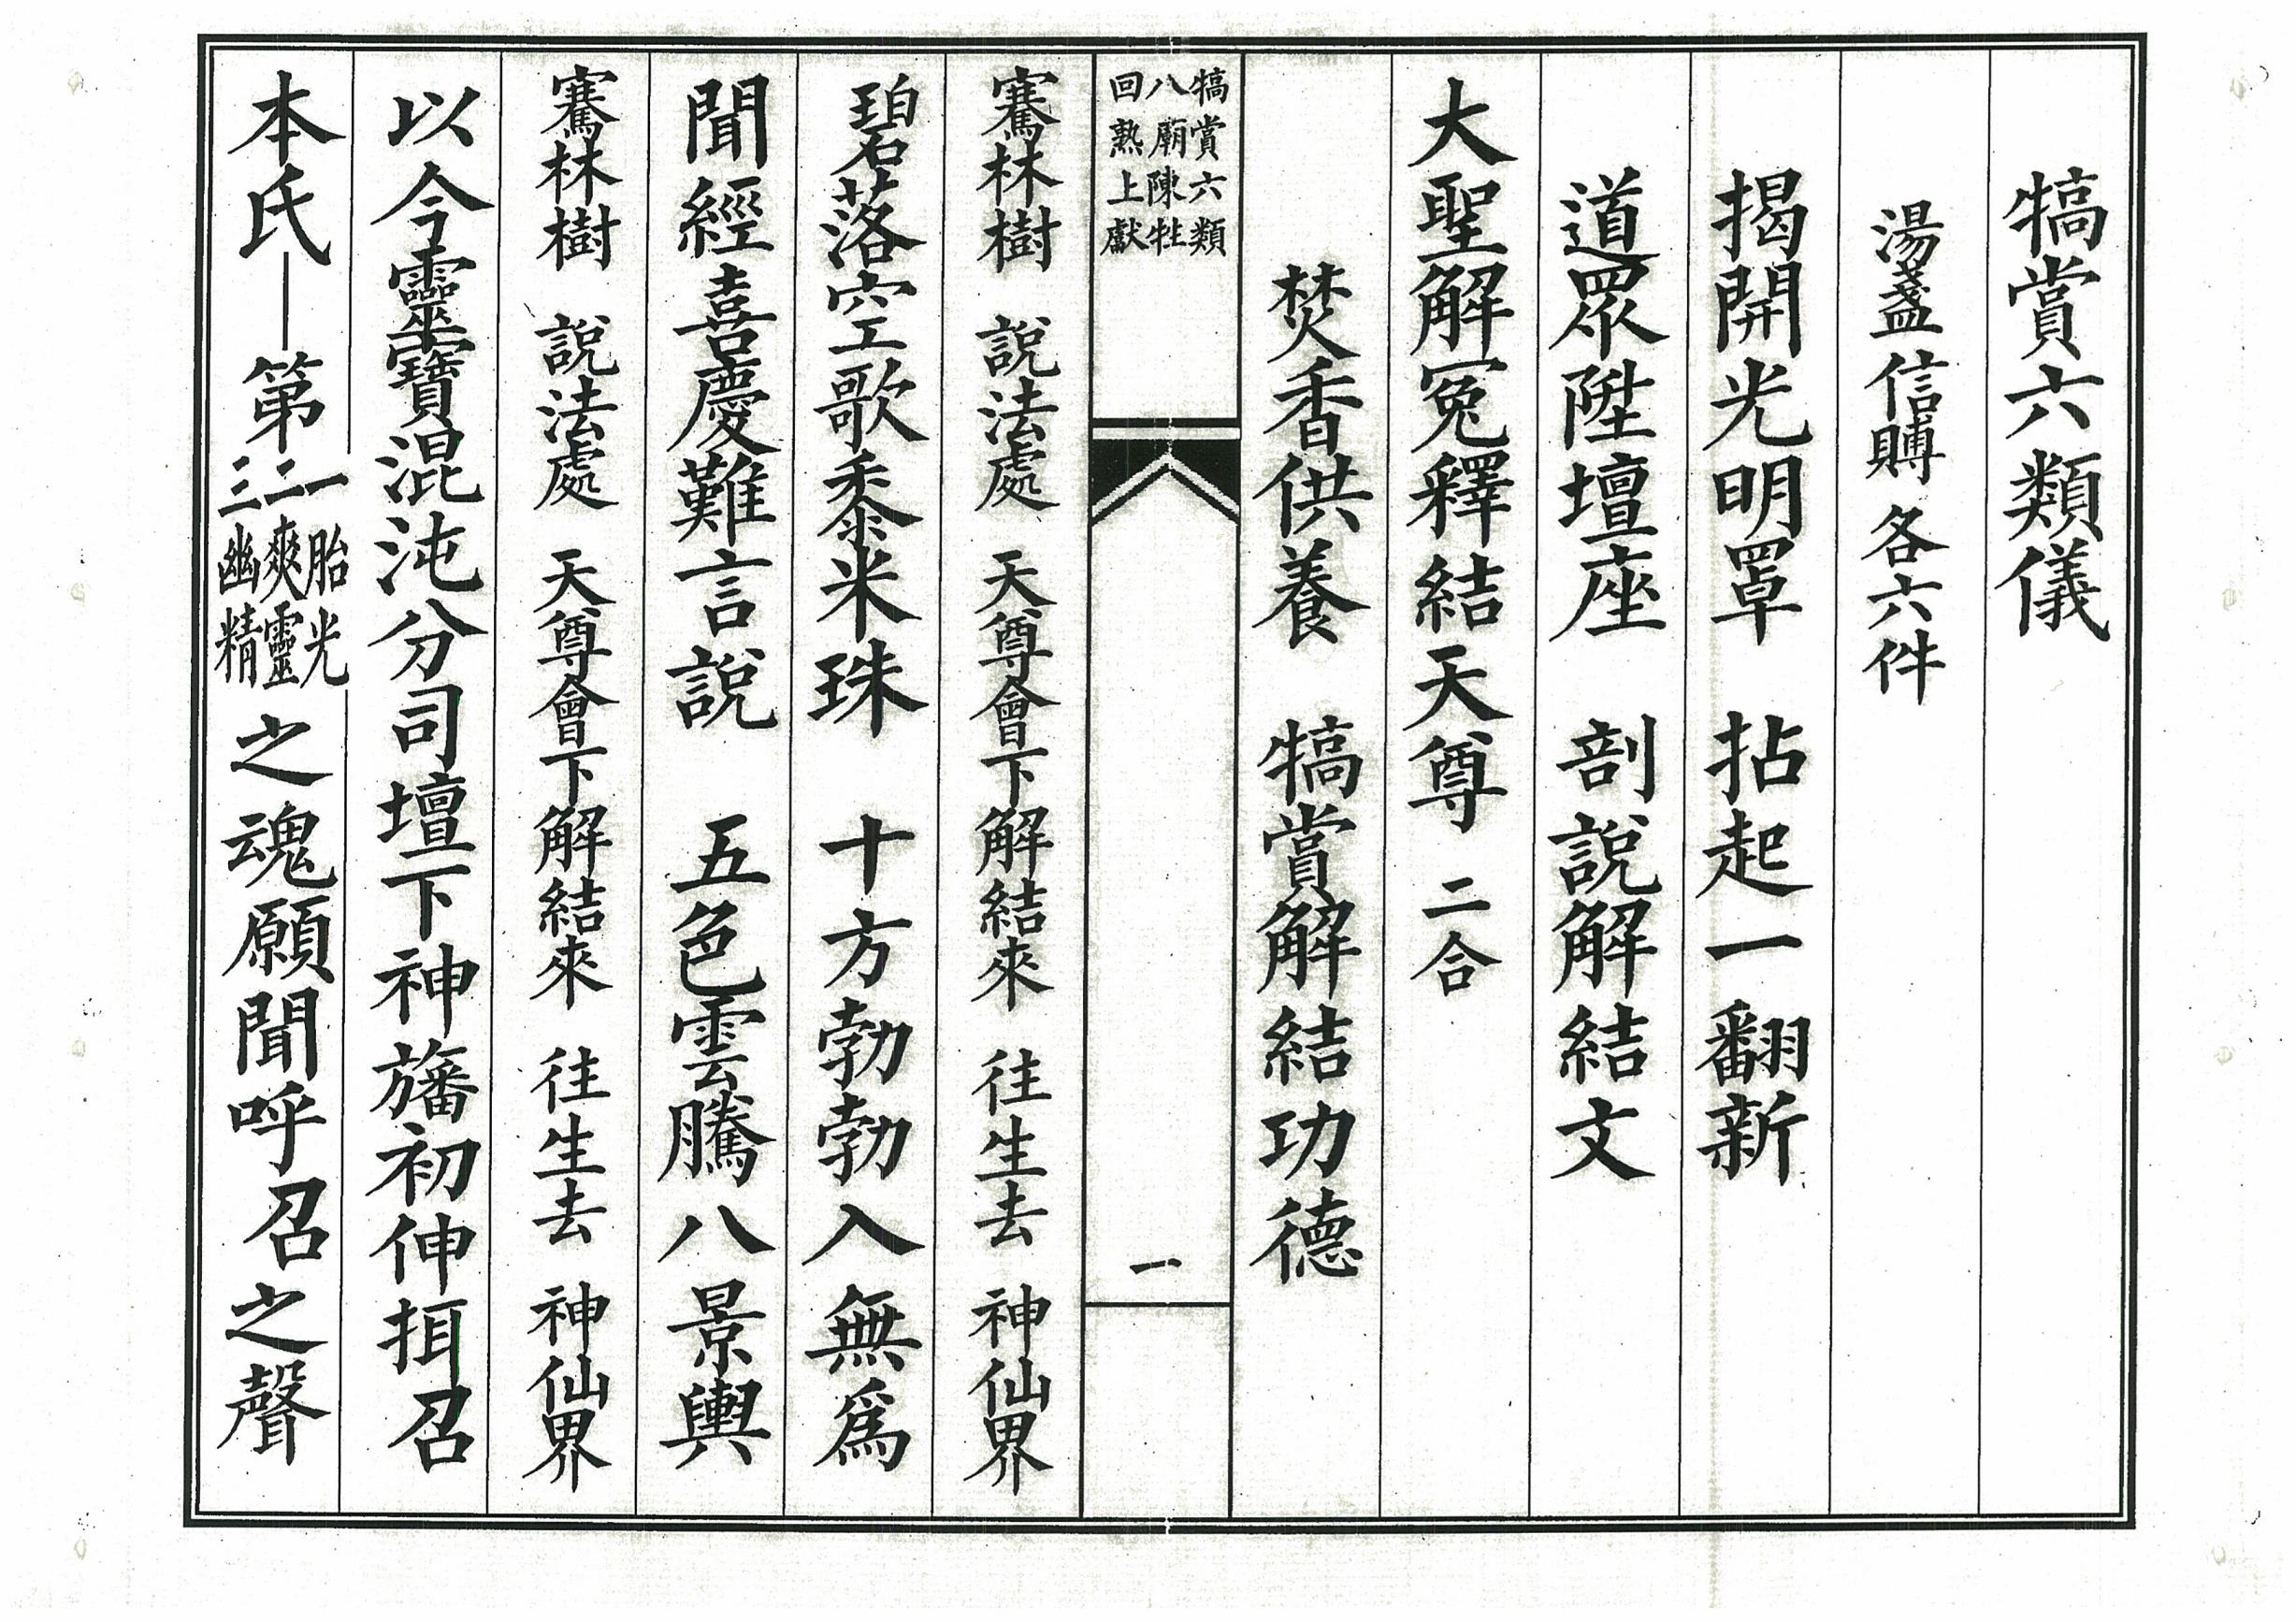 犒賞六類儀
湯盞 信賻 各六件
揭開光明罩 拈起一翻新
道眾陞壇座 剖說解結文
大聖解冤釋結天尊 二合
焚香供養 犒賞解結功德
犒賞六類
八廟陳牲
回熟上獻
一
騫林樹 說法處 天尊會下解結來 往生去 神仙界
碧落空歌黍米珠 十方勃勃入無爲
聞經喜慶難言說 五色雲騰八景輿
騫林樹 說法處 天尊會下解結來 往生去 神仙界
以今靈寶混沌分司壇下神旛初伸挕召
本氏｜第一胎光二爽靈三幽精之魂願聞呼召之聲